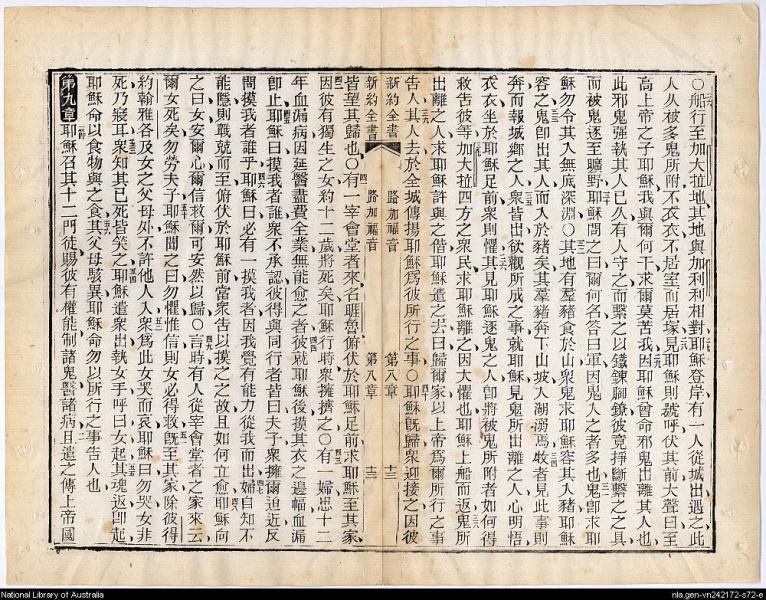 ○船行至加大拉地其地與加利利相對耶穌登岸有一人從城出遇之此
人久被多鬼所附不衣衣不居室而居塚見耶穌則號呼伏其前大聲曰至
高上帝之子耶穌我與爾何干求爾莫苦我因耶穌曾命邪鬼出離其人也
此邪鬼強執其人已久有人守之而繫之以鐵鍊腳鐐彼竟掙斷繫之之具
而被鬼逐至曠野耶穌問之曰爾何名答曰軍因鬼入之者多也鬼卽求耶
穌勿令其入無底深淵○其地有羣豬食於山衆鬼求耶穌容其入豬耶穌
容之鬼卽出其人而入於豬矣其羣豬奔下山坡入湖溺焉牧者見此事則
奔而報城鄉之人衆皆出欲觀所成之事就耶穌見鬼所出離之人心明悟
衣衣坐於耶穌足前衆則懼其見耶穌逐鬼之人卽將被鬼所附者如何得
救告彼等加大拉四方之衆民求耶穌離之因大懼也耶穌上船而返鬼所
出離之人求耶穌許與之偕耶穌遣之去曰歸爾家以上帝爲爾所行之事
告人其人去於全城傳揚耶穌爲彼所行之事○耶穌旣歸衆迎接之因彼
新約全書 路加福音 第八章 十三
新約全書 路加福音 第八章 十三
皆望其歸也○有一宰會堂者來名睚魯俯伏於耶穌足前求耶穌至其家
因彼有獨生之女約十二歲將死矣耶穌行時衆擁擠之○有一婦患十二
年血漏病因延醫盡費全業無能愈之者彼就耶穌後摸其衣之邊幅血漏
卽止耶穌曰摸我者誰衆不承認彼得與同行者皆曰夫子衆擁爾迫近反
問摸我者誰乎耶穌曰必有一摸我者因我覺有能力從我而出婦自知不
能隱則戰兢而至俯伏於耶穌前當衆告以摸之之故且如何立愈耶穌向
之曰女安爾心爾信救爾可安然以歸○言時有人從宰會堂者之家來云
爾女死矣勿勞夫子耶穌聞之曰勿懼惟信則女必得救旣至其家除彼得
約翰雅各及女之父母外不許他人入衆爲此女哭而哀耶穌曰勿哭女非
死乃寢耳衆知其已死皆笑之耶穌遣衆出執女手呼曰女起其魂返卽起
耶穌命以食物與之食其父母駭異耶穌命勿以所行之事告人也
第九章耶穌召其十二門徒賜彼有權能制諸鬼醫諸病且遣之傳上帝國
National Library of Australia
nla.gen-vn242172-s72-e